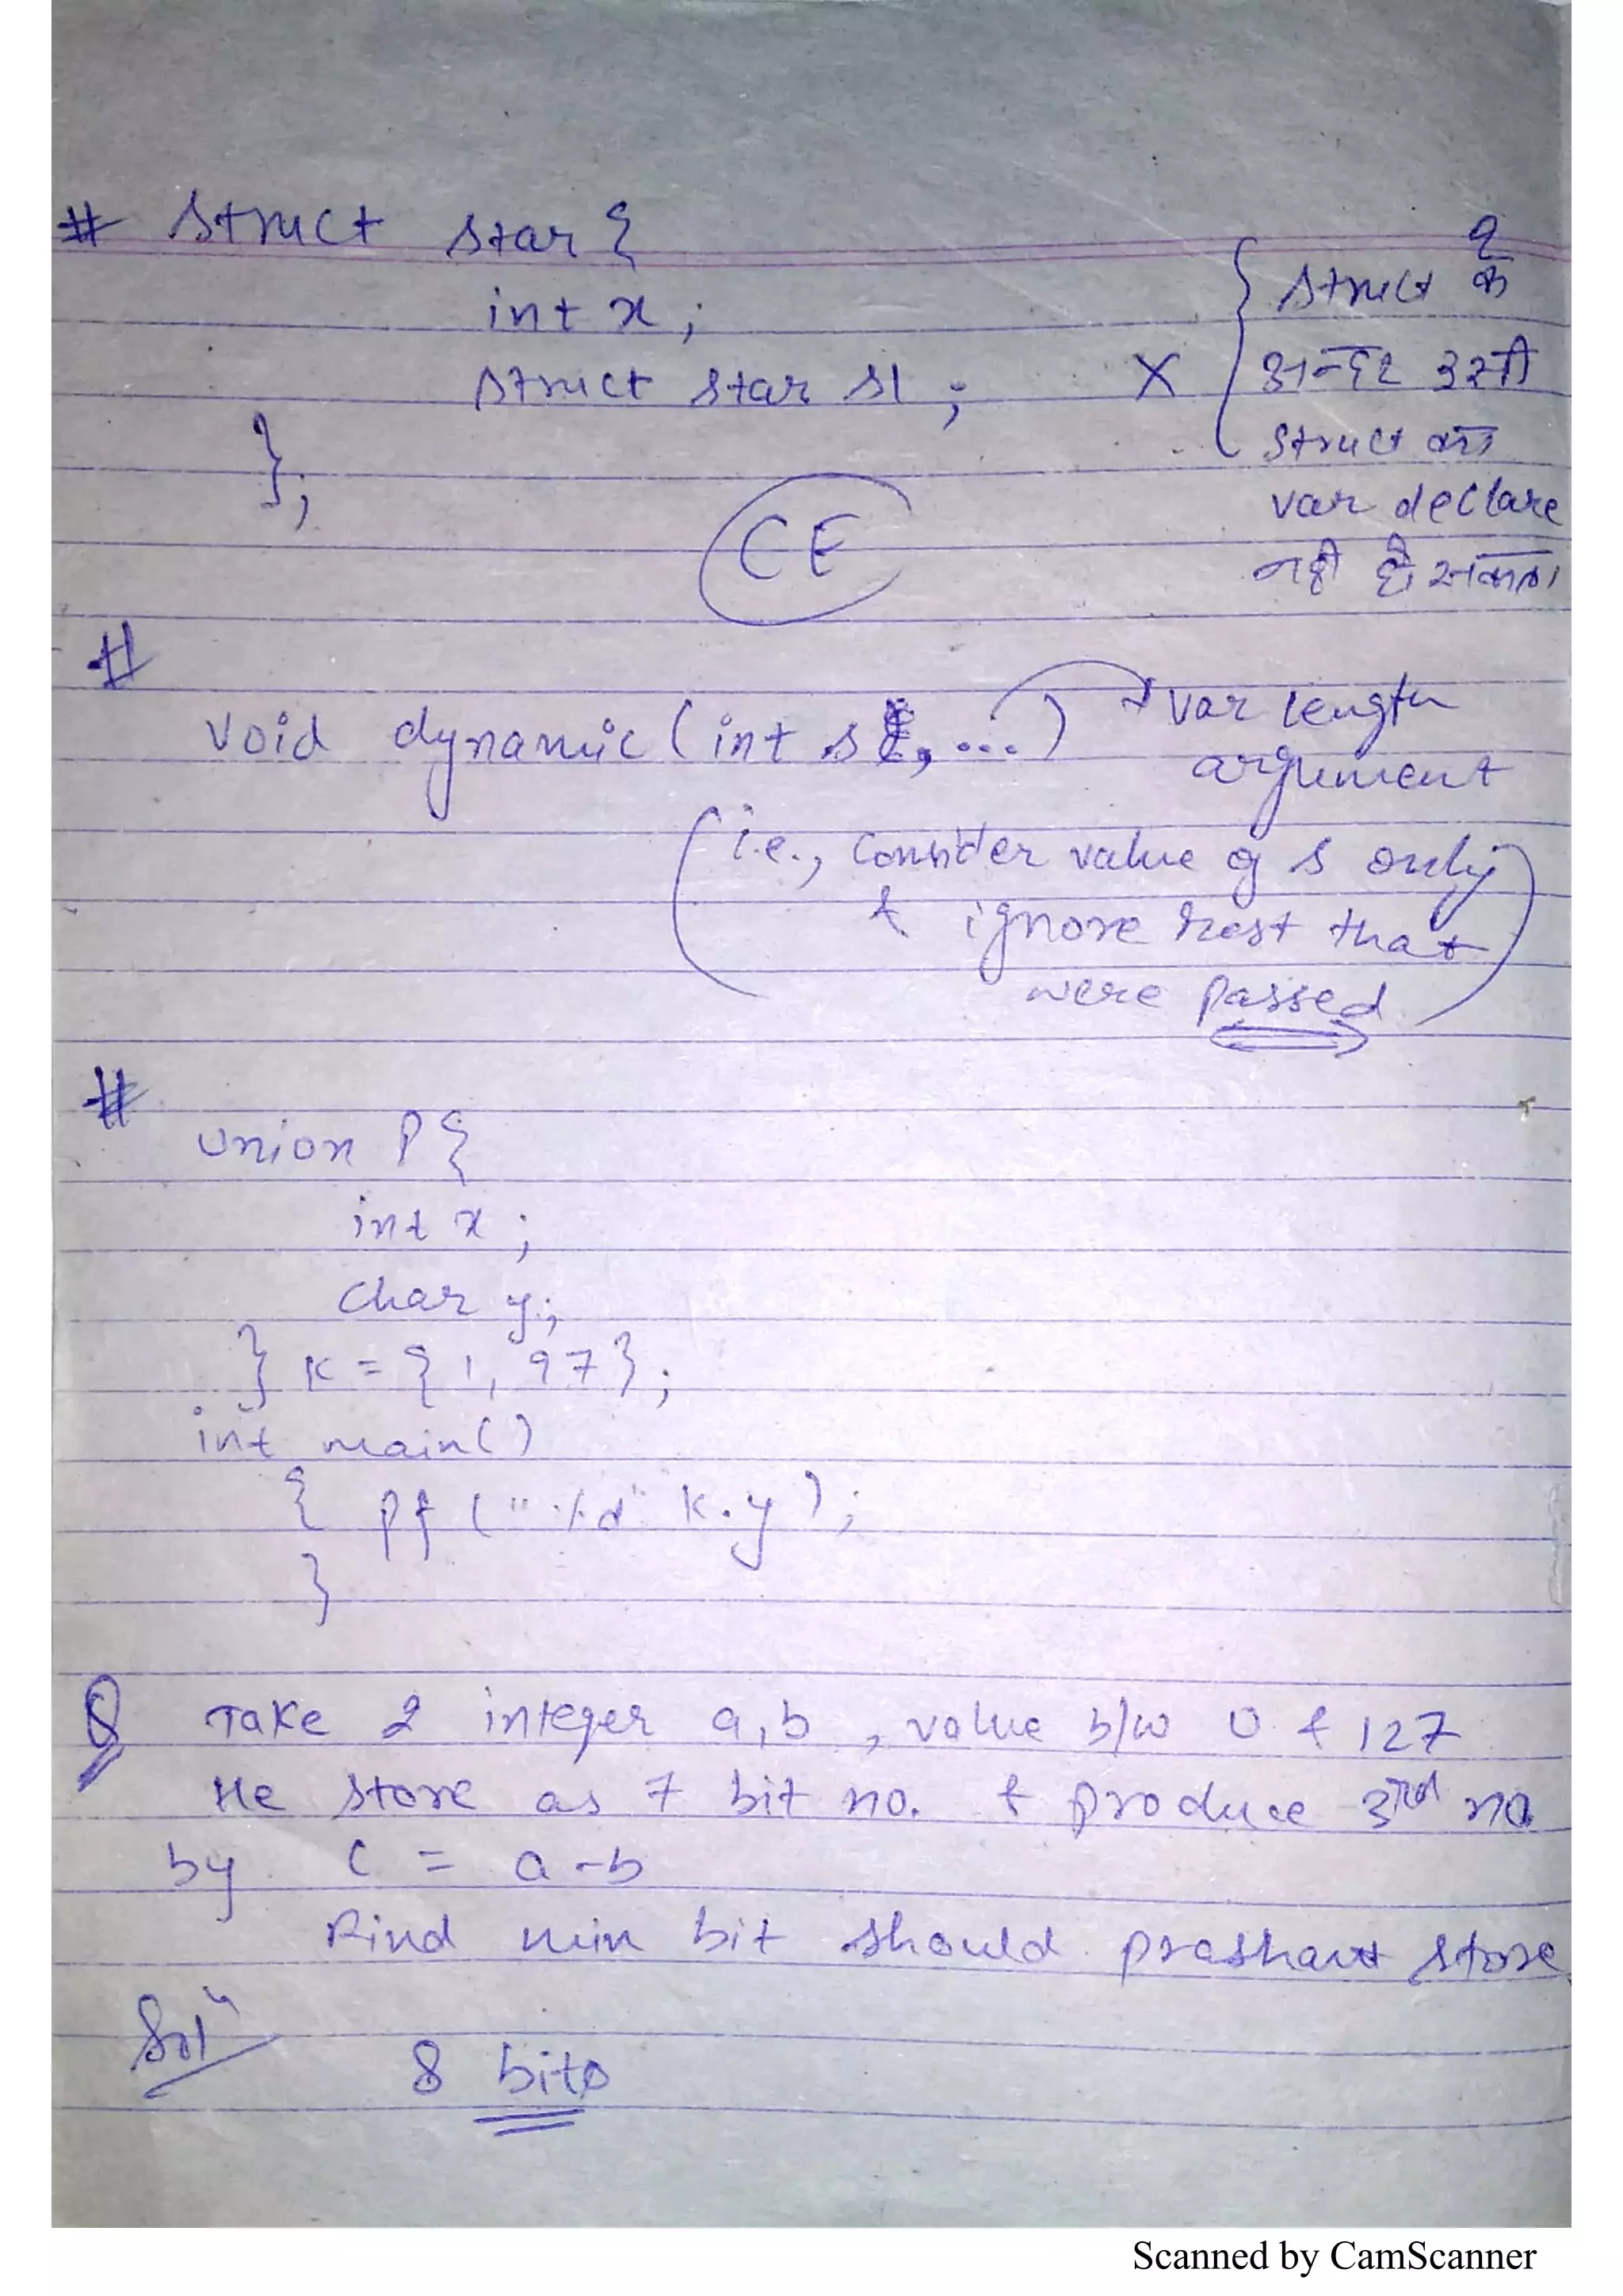 # struct star {
int x;
struct star s1 ; X
};
{ struct के
अन्दर उसी
struct का
var declare
नही हो सकता
CE
#
void dynamic (int s , ...) → var length
argument
(i.e., consider value of s only
& ignore rest that
were passed)
#
union P {
int x ;
char y;
} K = { 1, 97 };
int main()
{ pf ( "%d" K.y );
}
Q Take 2 integer a, b , value b/w 0 & 127
He store as 7 bit no. & produce 3rd no
by C = a-b
Find min bit should prashant store
Solⁿ
8 bits
Scanned by CamScanner